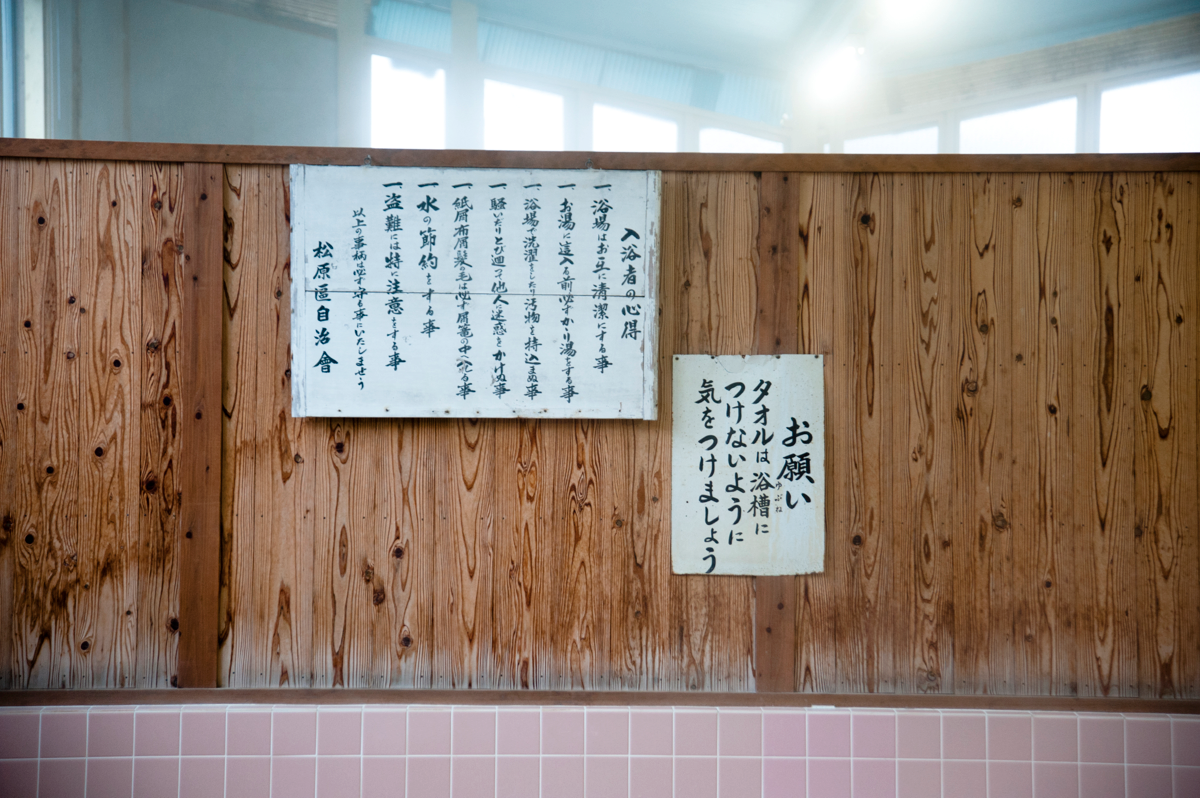 入浴者の心得
一、浴場はお互に清潔にする事
一、お湯に這入る前必ずかゝり湯をする事
一、浴場で洗濯をしたり汚物を持込まぬ事
一、騒いだりとび廻って他人に迷惑をかけぬ事
一、紙屑布屑髪の毛は必ず屑篭の中へ入れる事
一、水の節約をする事
一、盗難には特に注意をする事
以上の事柄は必ず守る事にいたしませう
松原區自治會
お願い
タオルは浴槽に
ゆぶね
つけないように
気をつけましょう